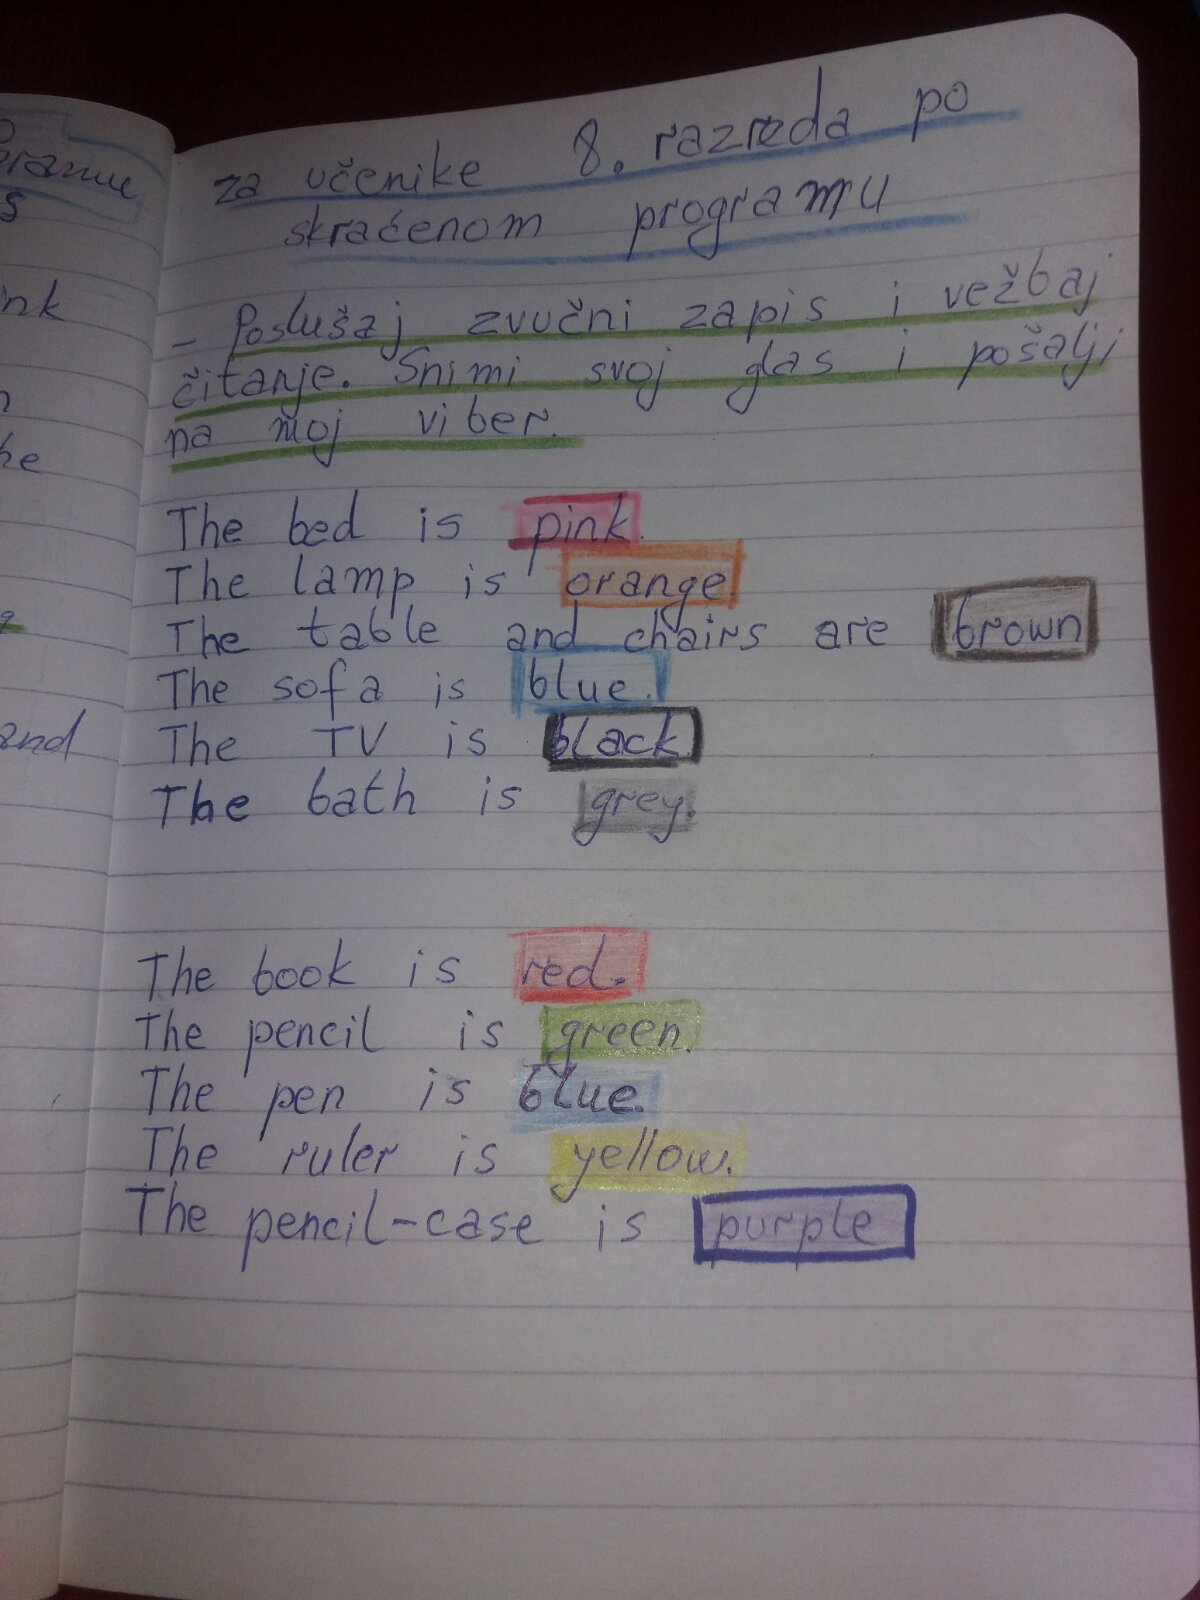 za učenike 8. razreda po
skraćenom programu
- Poslušaj zvučni zapis i vežbaj
čitanje. Snimi svoj glas i pošalji
na moj viber.
The bed is pink.
The lamp is orange.
The table and chairs are brown
The sofa is blue.
The TV is black.
The bath is grey.
The book is red.
The pencil is green.
The pen is blue.
The ruler is yellow.
The pencil-case is purple
and